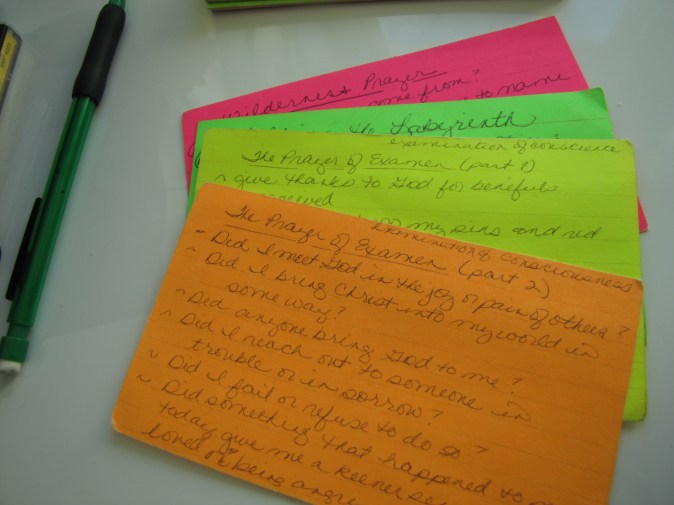 Wilderness Prayer
come from?
to name
the Labyrinth
examination of conscience
The Prayer of Examen (part 1)
~ give thanks to God for benefits
received
my sins and rid
examination of consciousness
The Prayer of Examen (part 2)
~ Did I meet God in the joy or pain of others?
~ Did I bring Christ into my world in
some way?
~ Did anyone bring God to me?
~ Did I reach out to someone in
trouble or in sorrow?
~ Did I fail or refuse to do so?
~ Did something that happened to
today give me a keener
loved or being angry